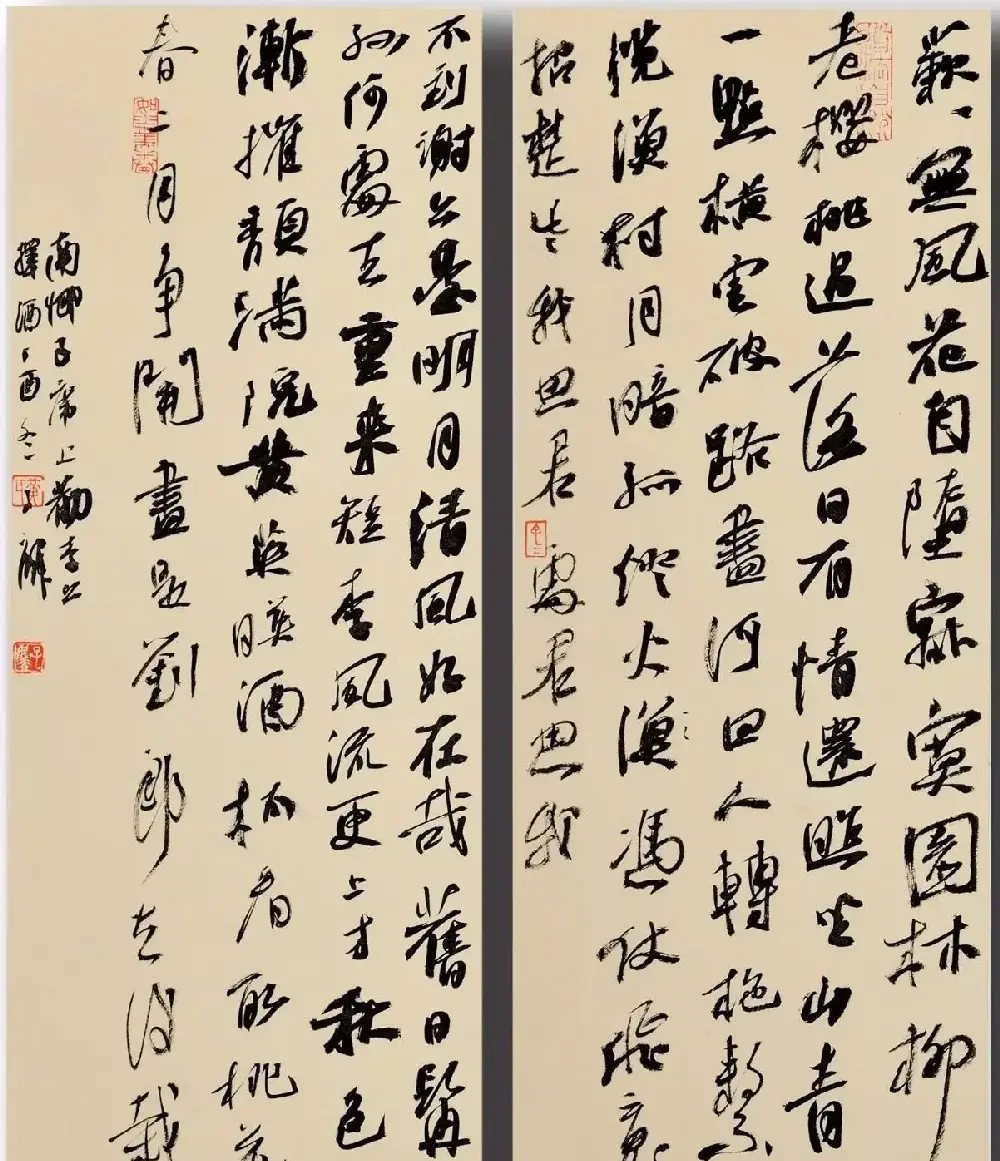 蔌〻無風花自墮寂寞園林柳
老櫻桃過落日有情還照坐山青
一點橫雲破路盡河回人轉柂繫
纜漁村月暗孤燈火漁憑仗飛魂
招楚些我思君處君思我
不到謝公臺明月清風好在哉舊日髯
孫何處去重來短李風流更上才秋色
漸摧頹滿院黃英映酒杯看取桃花
春二月爭開盡是劉郎去後栽
南鄉子席上勸李公
擇酒丁酉冬